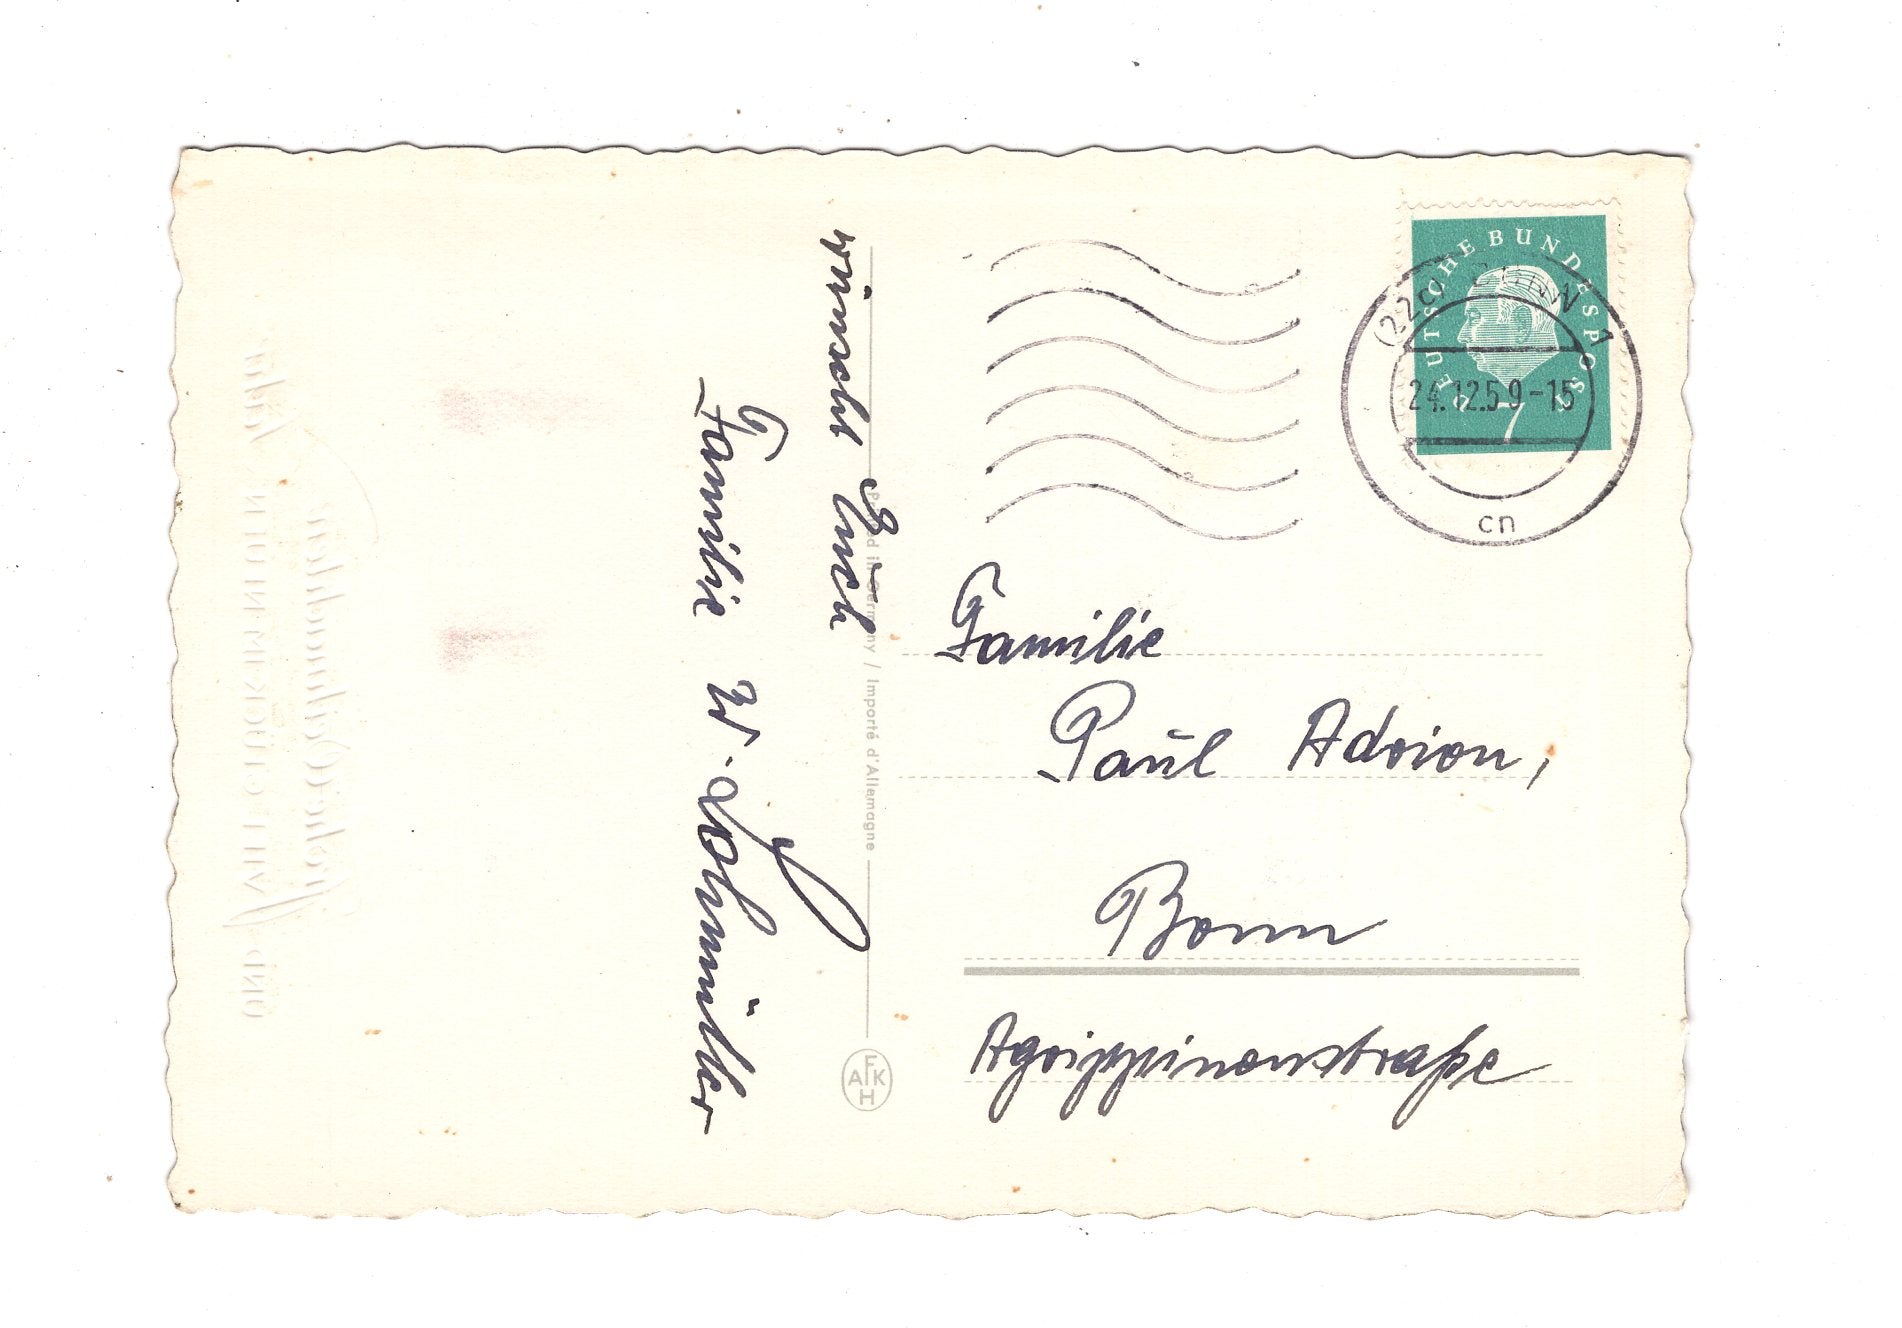 wünscht Euch
Familie W. Lohmüller
Printed in Germany / Importé d'Allemagne
AFKH
DEUTSCHE BUNDESPOST
7
(22c) BONN 1
24.12.59-15
cn
Familie
Paul Adrion,
Bonn
Agrippinenstraße
Frohe Weihnachten
UND VIEL GLÜCK IM NEUEN Jahr